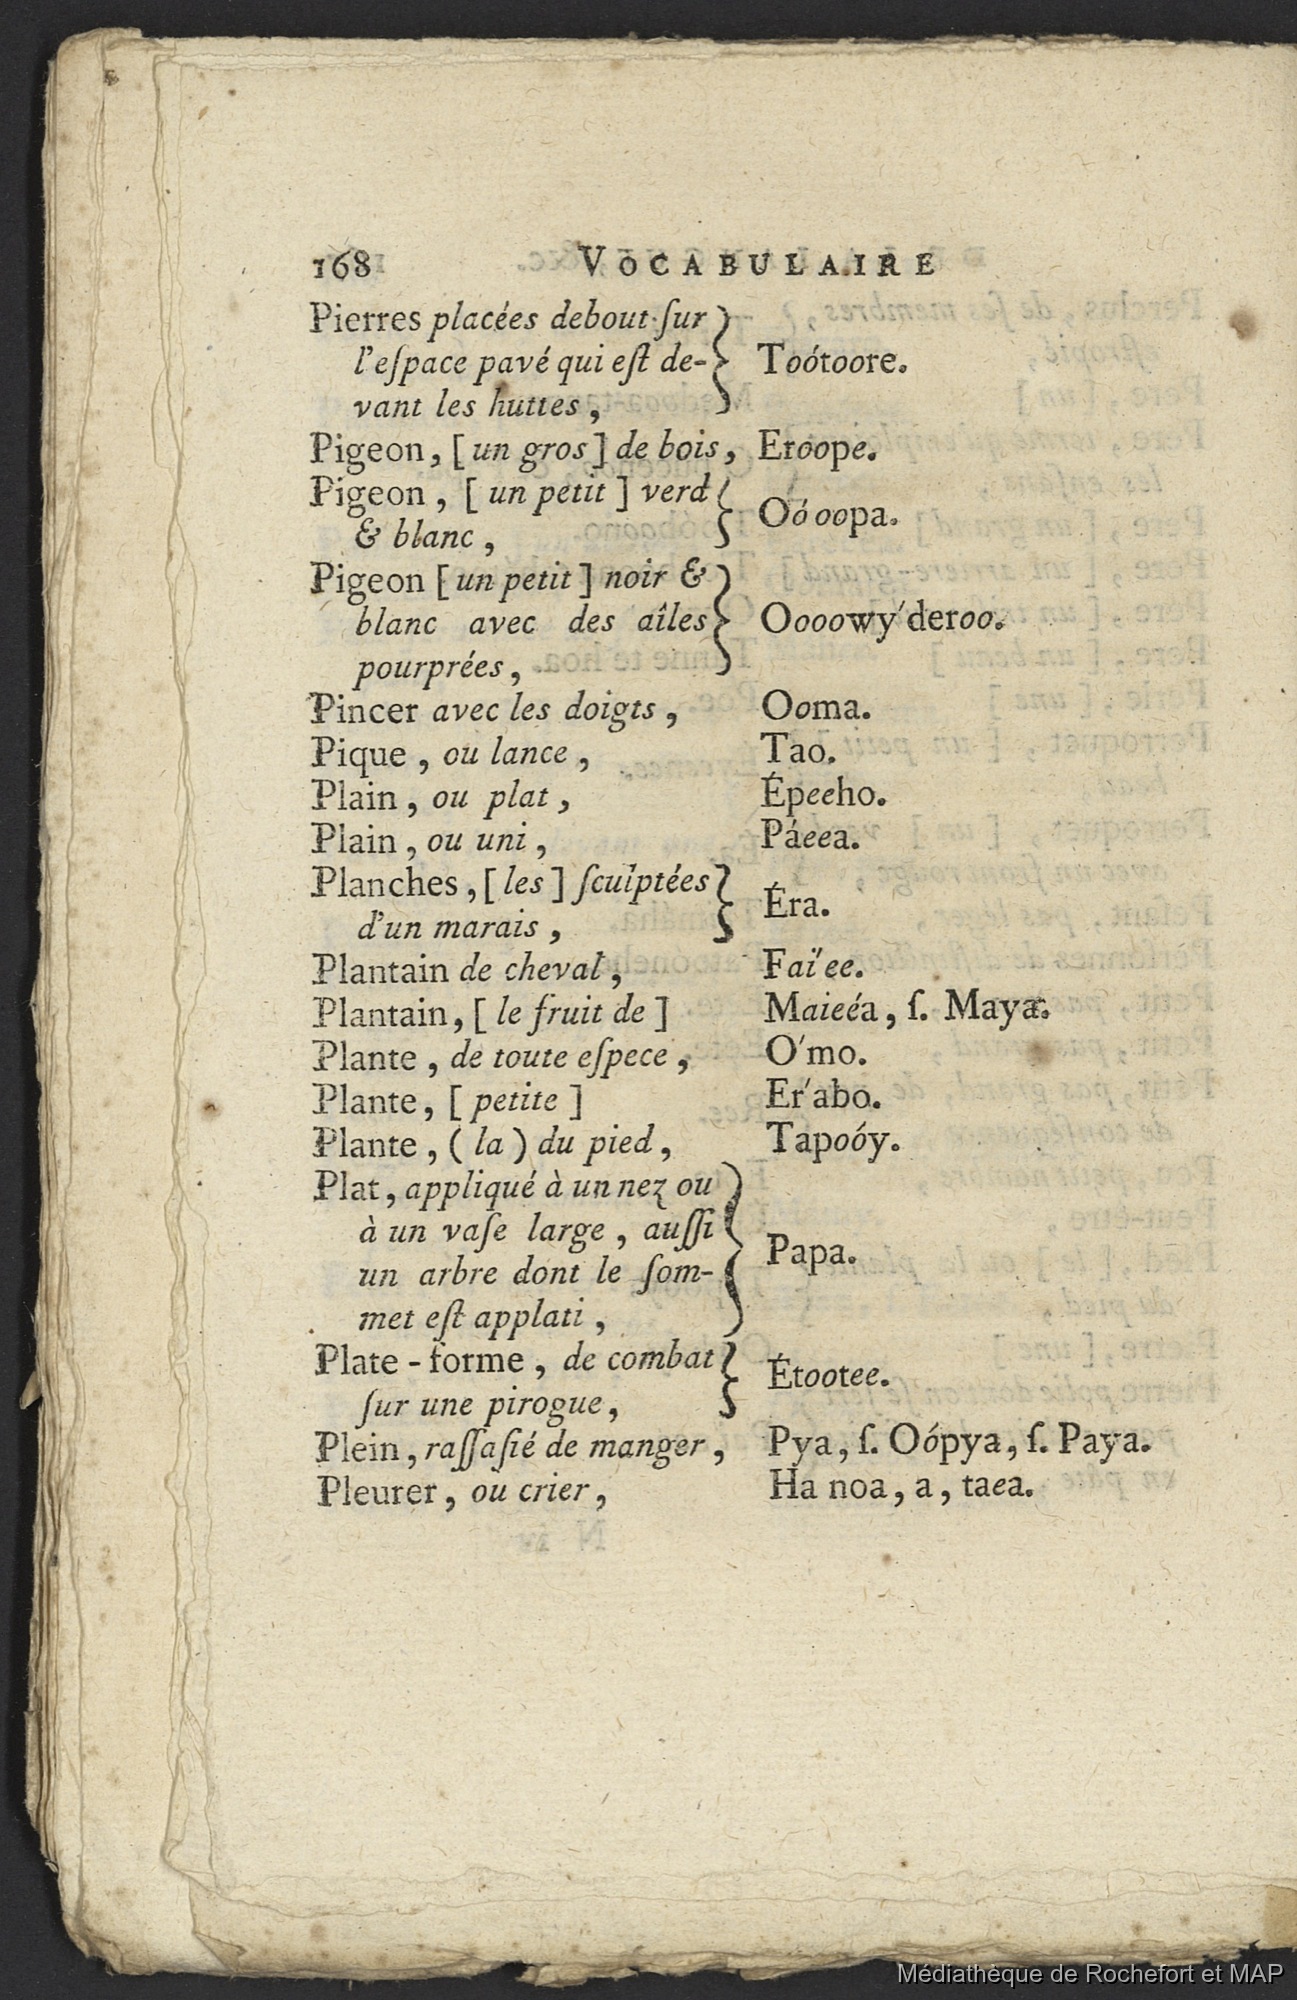 168 VOCABULAIRE
Pierres placées debout ſur
l'eſpace pavé qui eſt de- Toótoore.
vant les huttes,
Pigeon, [ un gros ] de bois, Eroope.
Pigeon, [ un petit ] verd
& blanc, Oó oopa.
Pigeon [ un petit ] noir &
blanc avec des aîles Oooowy'deroo.
pourprées,
Pincer avec les doigts, Ooma.
Pique, ou lance, Tao.
Plain, ou plat, Épeeho.
Plain, ou uni, Páeea.
Planches, [ les ] ſculptées
d'un marais, Éra.
Plantain de cheval, Faï'ee.
Plantain, [ le fruit de ] Maieéa, ſ. Maya.
Plante, de toute eſpece, O'mo.
Plante, [ petite ] Er'abo.
Plante, ( la ) du pied, Tapoóy.
Plat, appliqué à un nez ou
à un vaſe large, auſſi
un arbre dont le ſom- Papa.
met eſt applati,
Plate-forme, de combat
ſur une pirogue, Étootee.
Plein, raſſaſié de manger, Pya, ſ. Oópya, ſ. Paya.
Pleurer, ou crier, Ha noa, a, taea.
Médiathèque de Rochefort et MAP